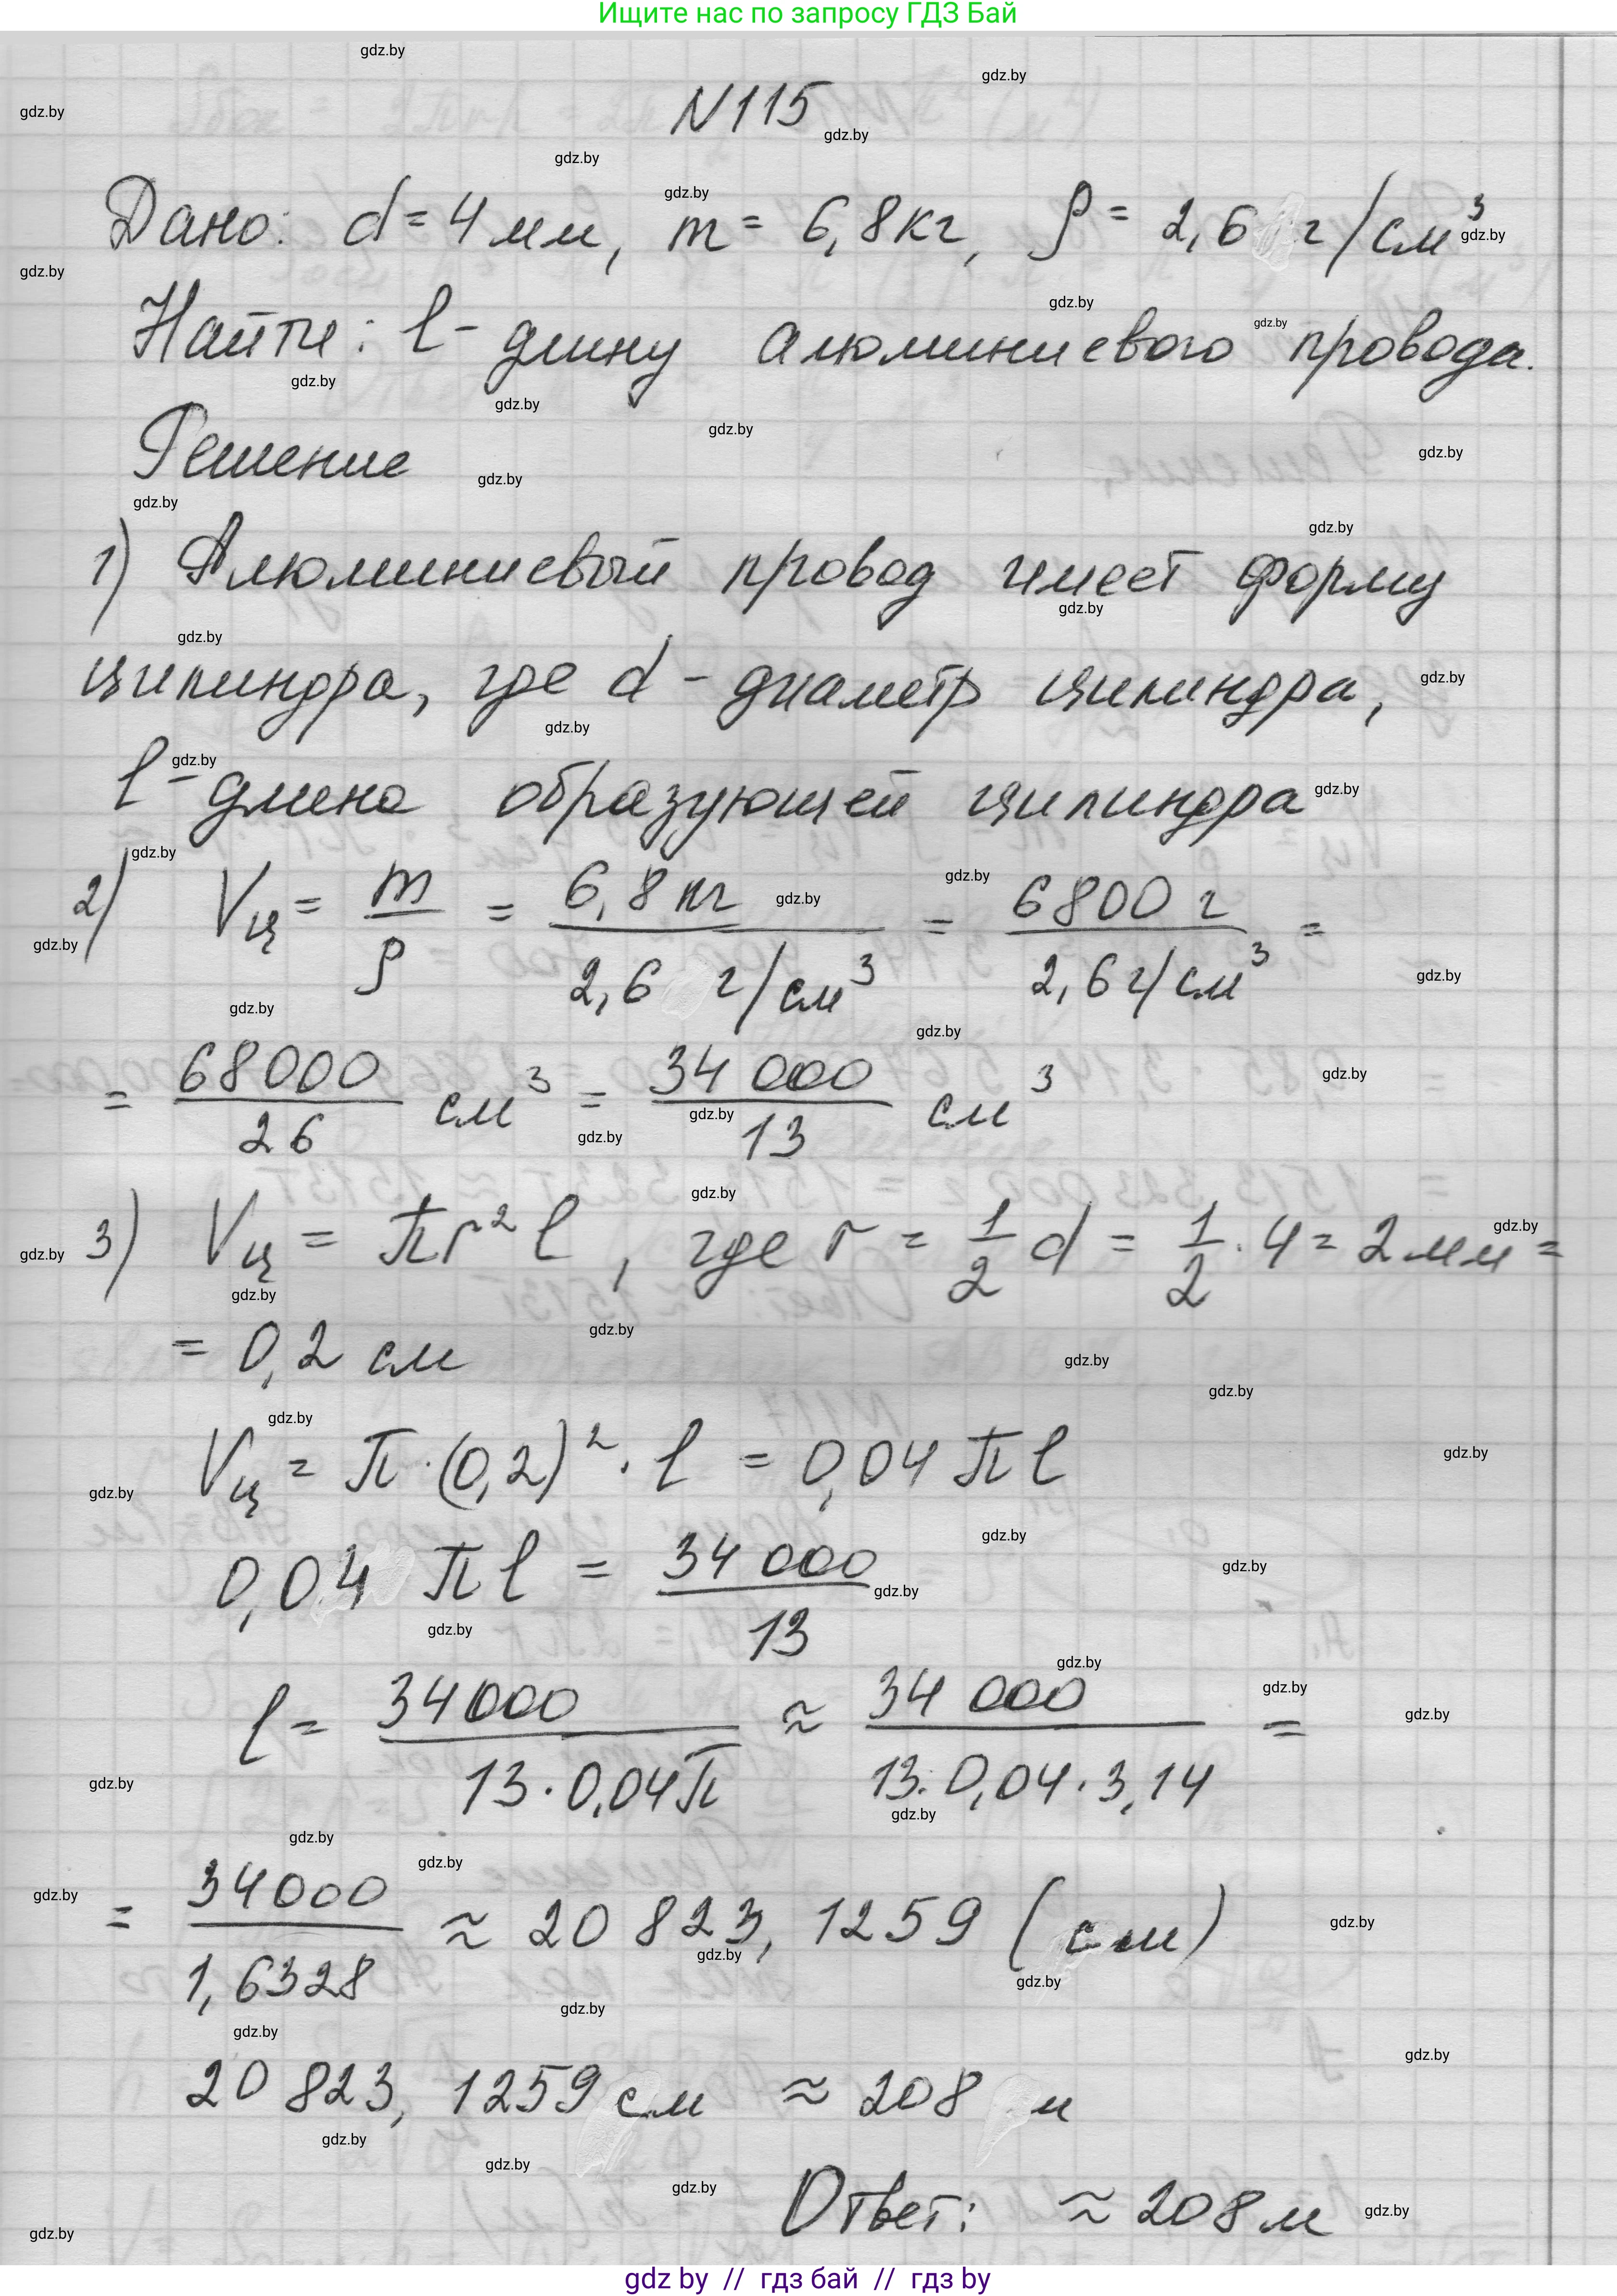 Ищите нас по запросу ГДЗ Бай
N115
Дано: d = 4 мм, m = 6,8 кг, ρ = 2,6 г/см³
Найти: l - длину алюминиевого провода.
Решение
1) Алюминиевый провод имеет форму
цилиндра, где d - диаметр цилиндра,
l - длина образующей цилиндра
2) Vц = m/ρ = 6,8 кг / 2,6 г/см³ = 6800 г / 2,6 г/см³ =
= 68000/26 см³ = 34 000/13 см³
3) Vц = πr²l, где r = 1/2 d = 1/2 · 4 = 2 мм =
= 0,2 см
Vц = π · (0,2)² · l = 0,04 πl
0,04 πl = 34 000/13
l = 34000/13 · 0,04π ≈ 34 000/13 · 0,04 · 3,14 =
= 34000/1,6328 ≈ 20 823, 1259 (см)
20 823, 1259 см ≈ 208 м
Ответ: ≈ 208 м
gdz by // гдз бай // гдз by